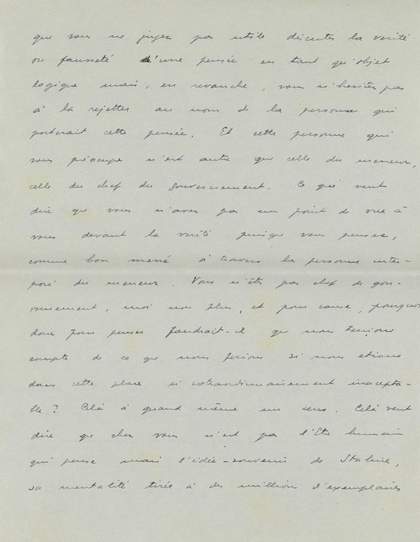 que vous ne jugez pas utile discuter la verité
ou fausseté d'une pensée en tant qu'objet
logique mais, en revanche, vous n'hesitez pas
à la rejetter au nom de la personne qui
porterait cette pensée. Et cette personne qui
vous préocupe n'est autre que celle du meneur,
celle du chef du gouvernement. Ce qui veut
dire que vous n'avez pas un point de vue à
vous devant la verité puisque vous pensez,
comme bon mené à travers la personne inter-
posé du meneur. Vous n'êts pas chef de gou-
vernement, moi non plus, et pour cause, pourquoi
donc pour penser faudrait-il que nous tenions
compte de ce que nous ferions si nous etions
dans cette place si extraordinairement inaccepta-
ble? Celà à quand même un sens. Celà veut
dire que chez vous n'est pas l'Etre humain
qui pense mais l'idée-souvenir de Staline,
sa mentalité tirée à des millions d'exemplaires